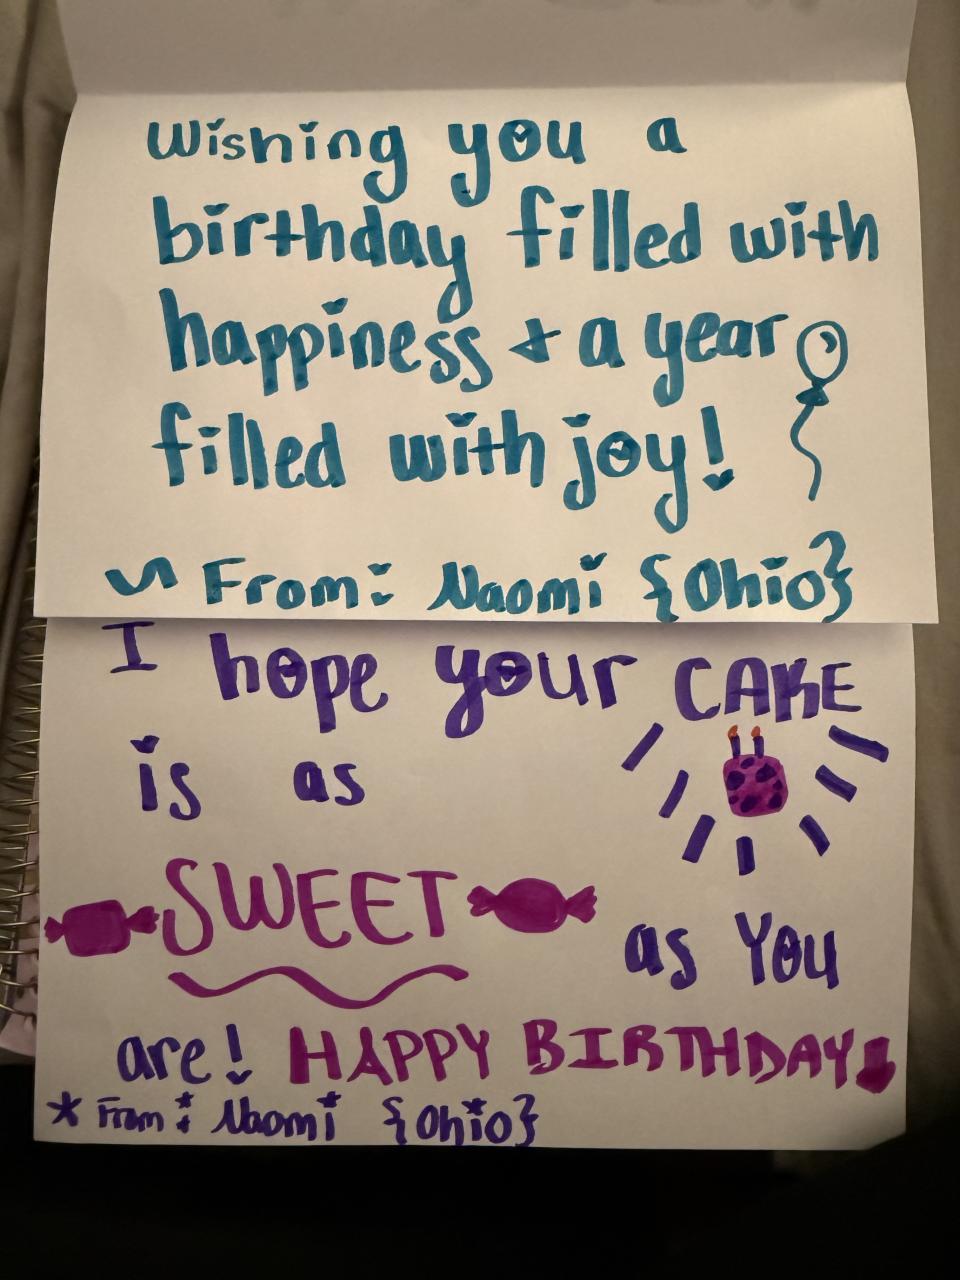 Wishing you a
birthday filled with
happiness & a year
filled with joy!
~ From: Naomi {Ohio}
I hope your CAKE
is as
SWEET as You
are! HAPPY BIRTHDAY
* From: Naomi {Ohio}